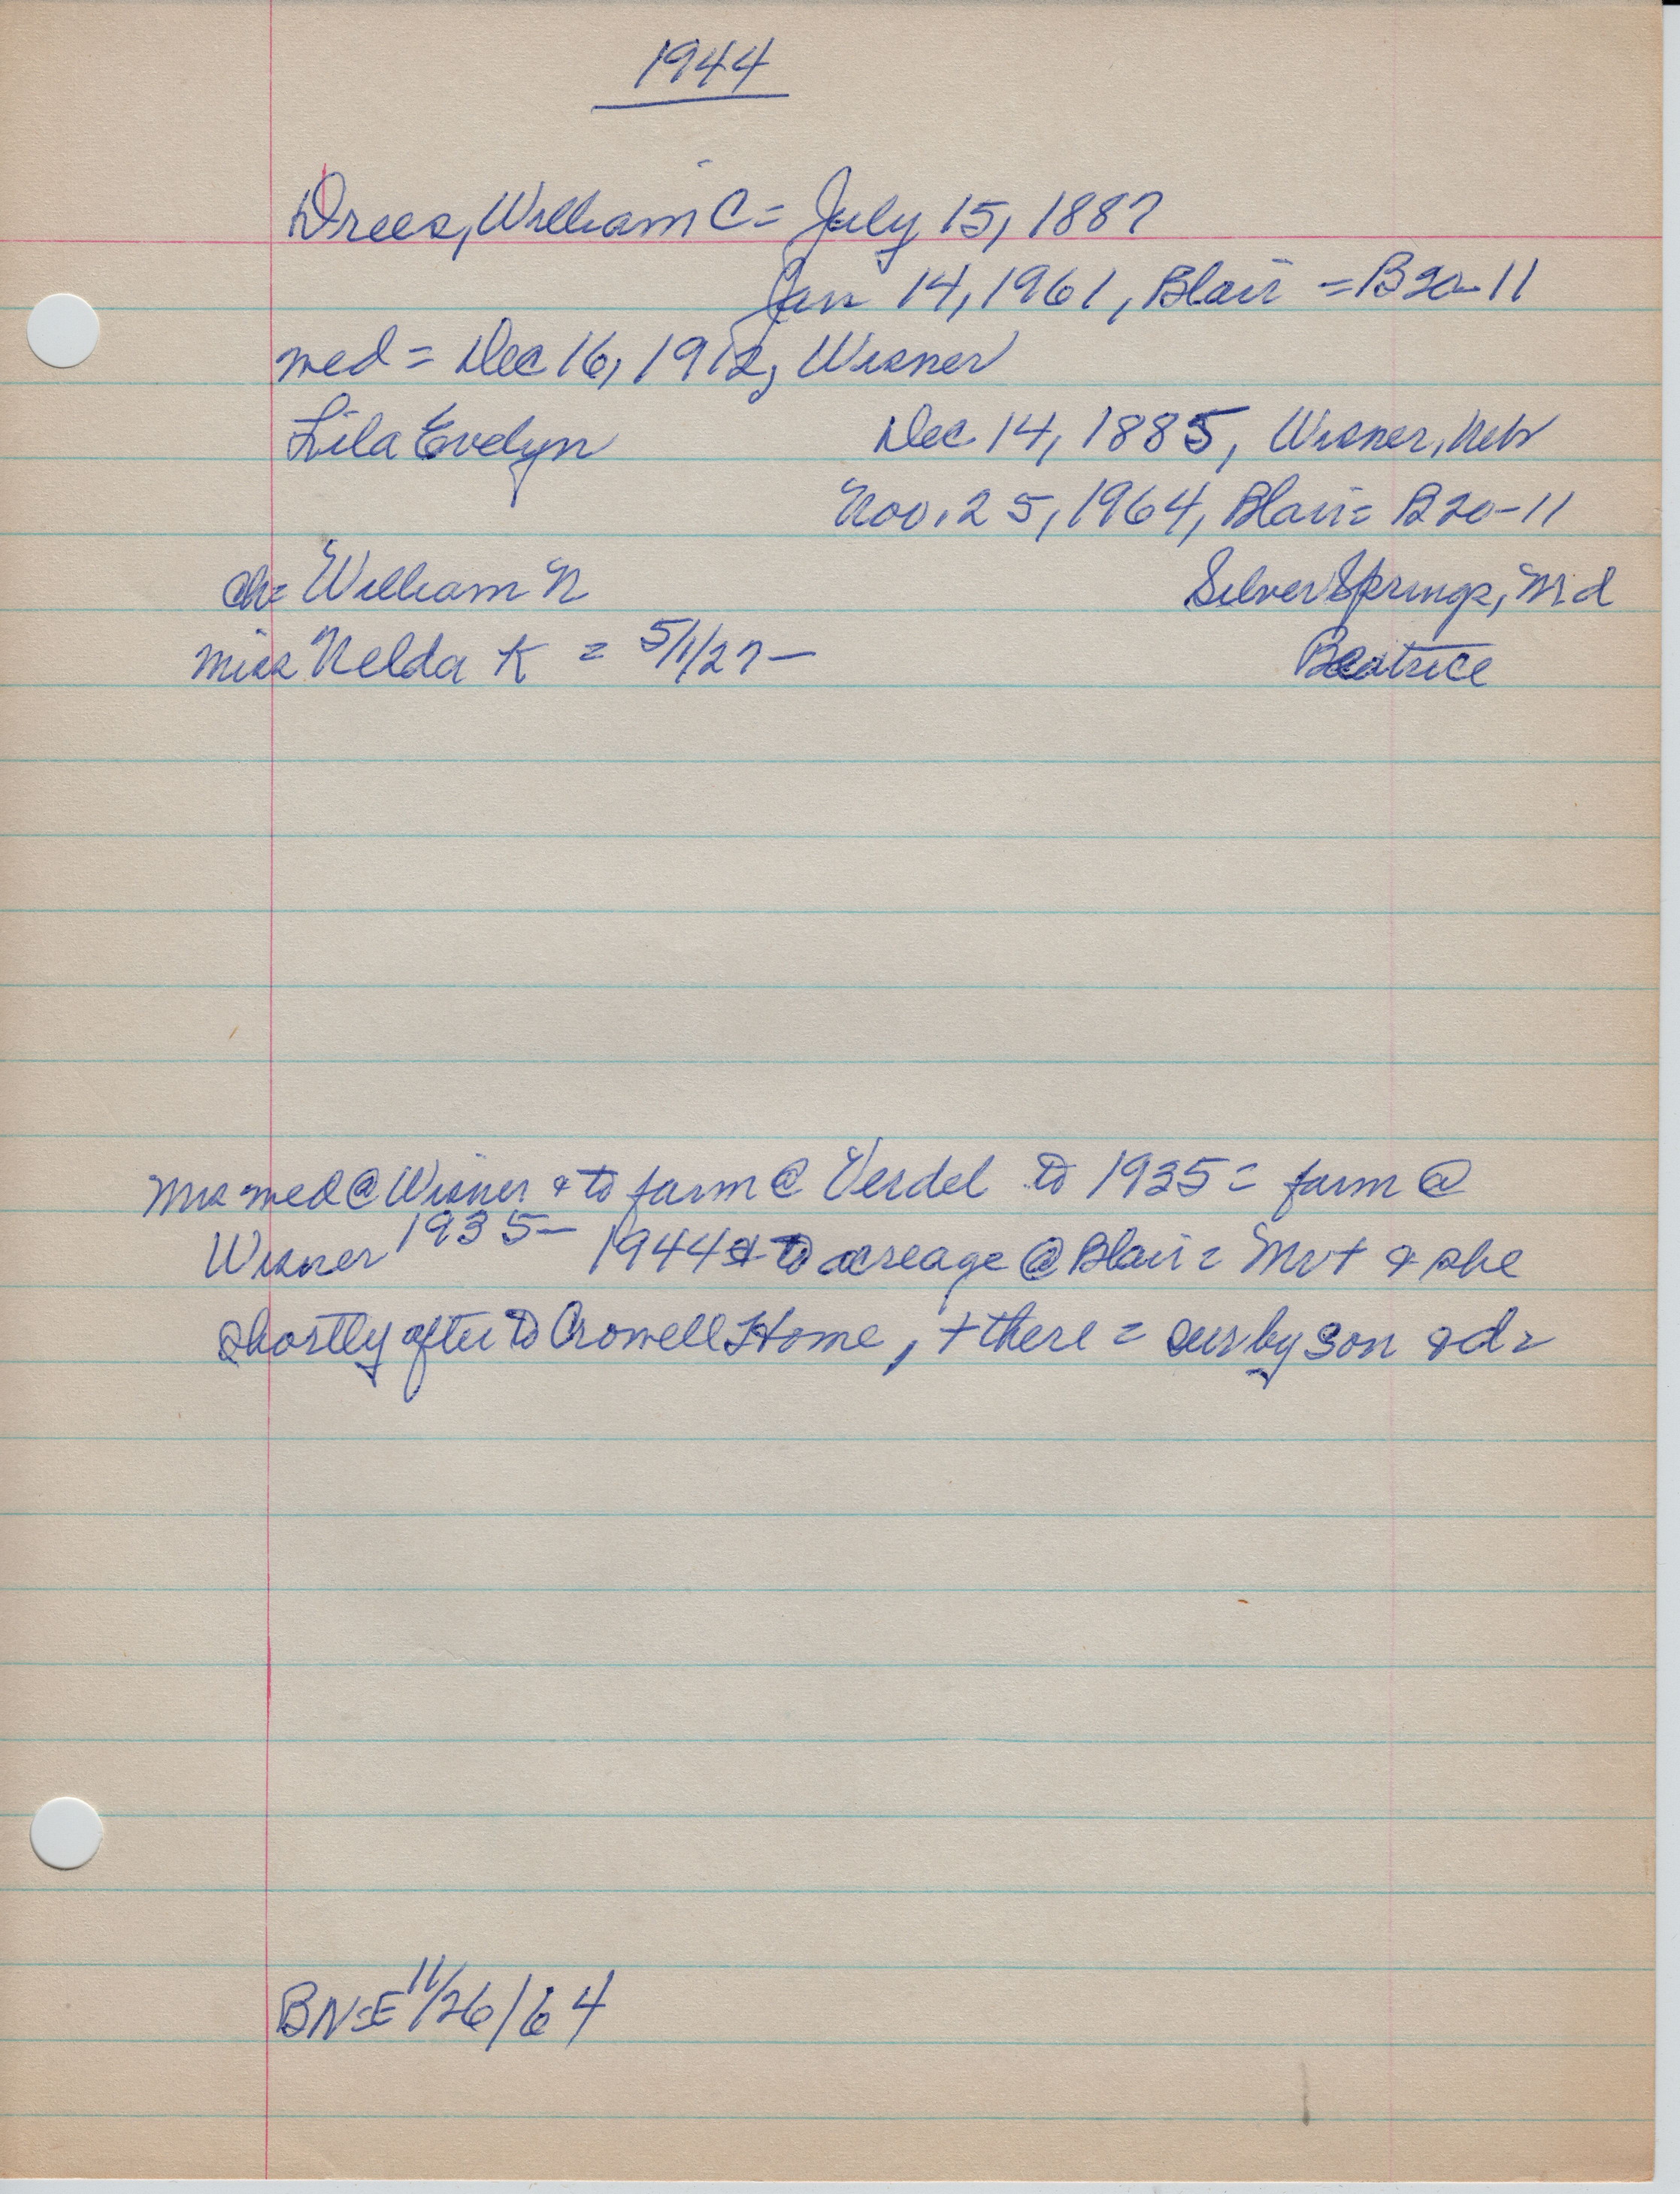 1944
Drees, William C = July 15, 1887
Jan 14, 1961, Blair = B20-11
med = Dec 16, 1912, Wisner
Lila Evelyn Dec 14, 1885, Wisner, Neb
Nov. 25, 1964, Blair = B20-11
ch= William N Silver Springs, Md
Miss Nelda K = 5/1/27 — Beatrice
Mrs med @ Wisner & to farm @ Verdel to 1935 = farm @
Wisner 1935 — 1944 & to acreage @ Blair = Mr + & she
shortly after to Crowell Home, + there = sur by son & d =
BN=E 11/26/64